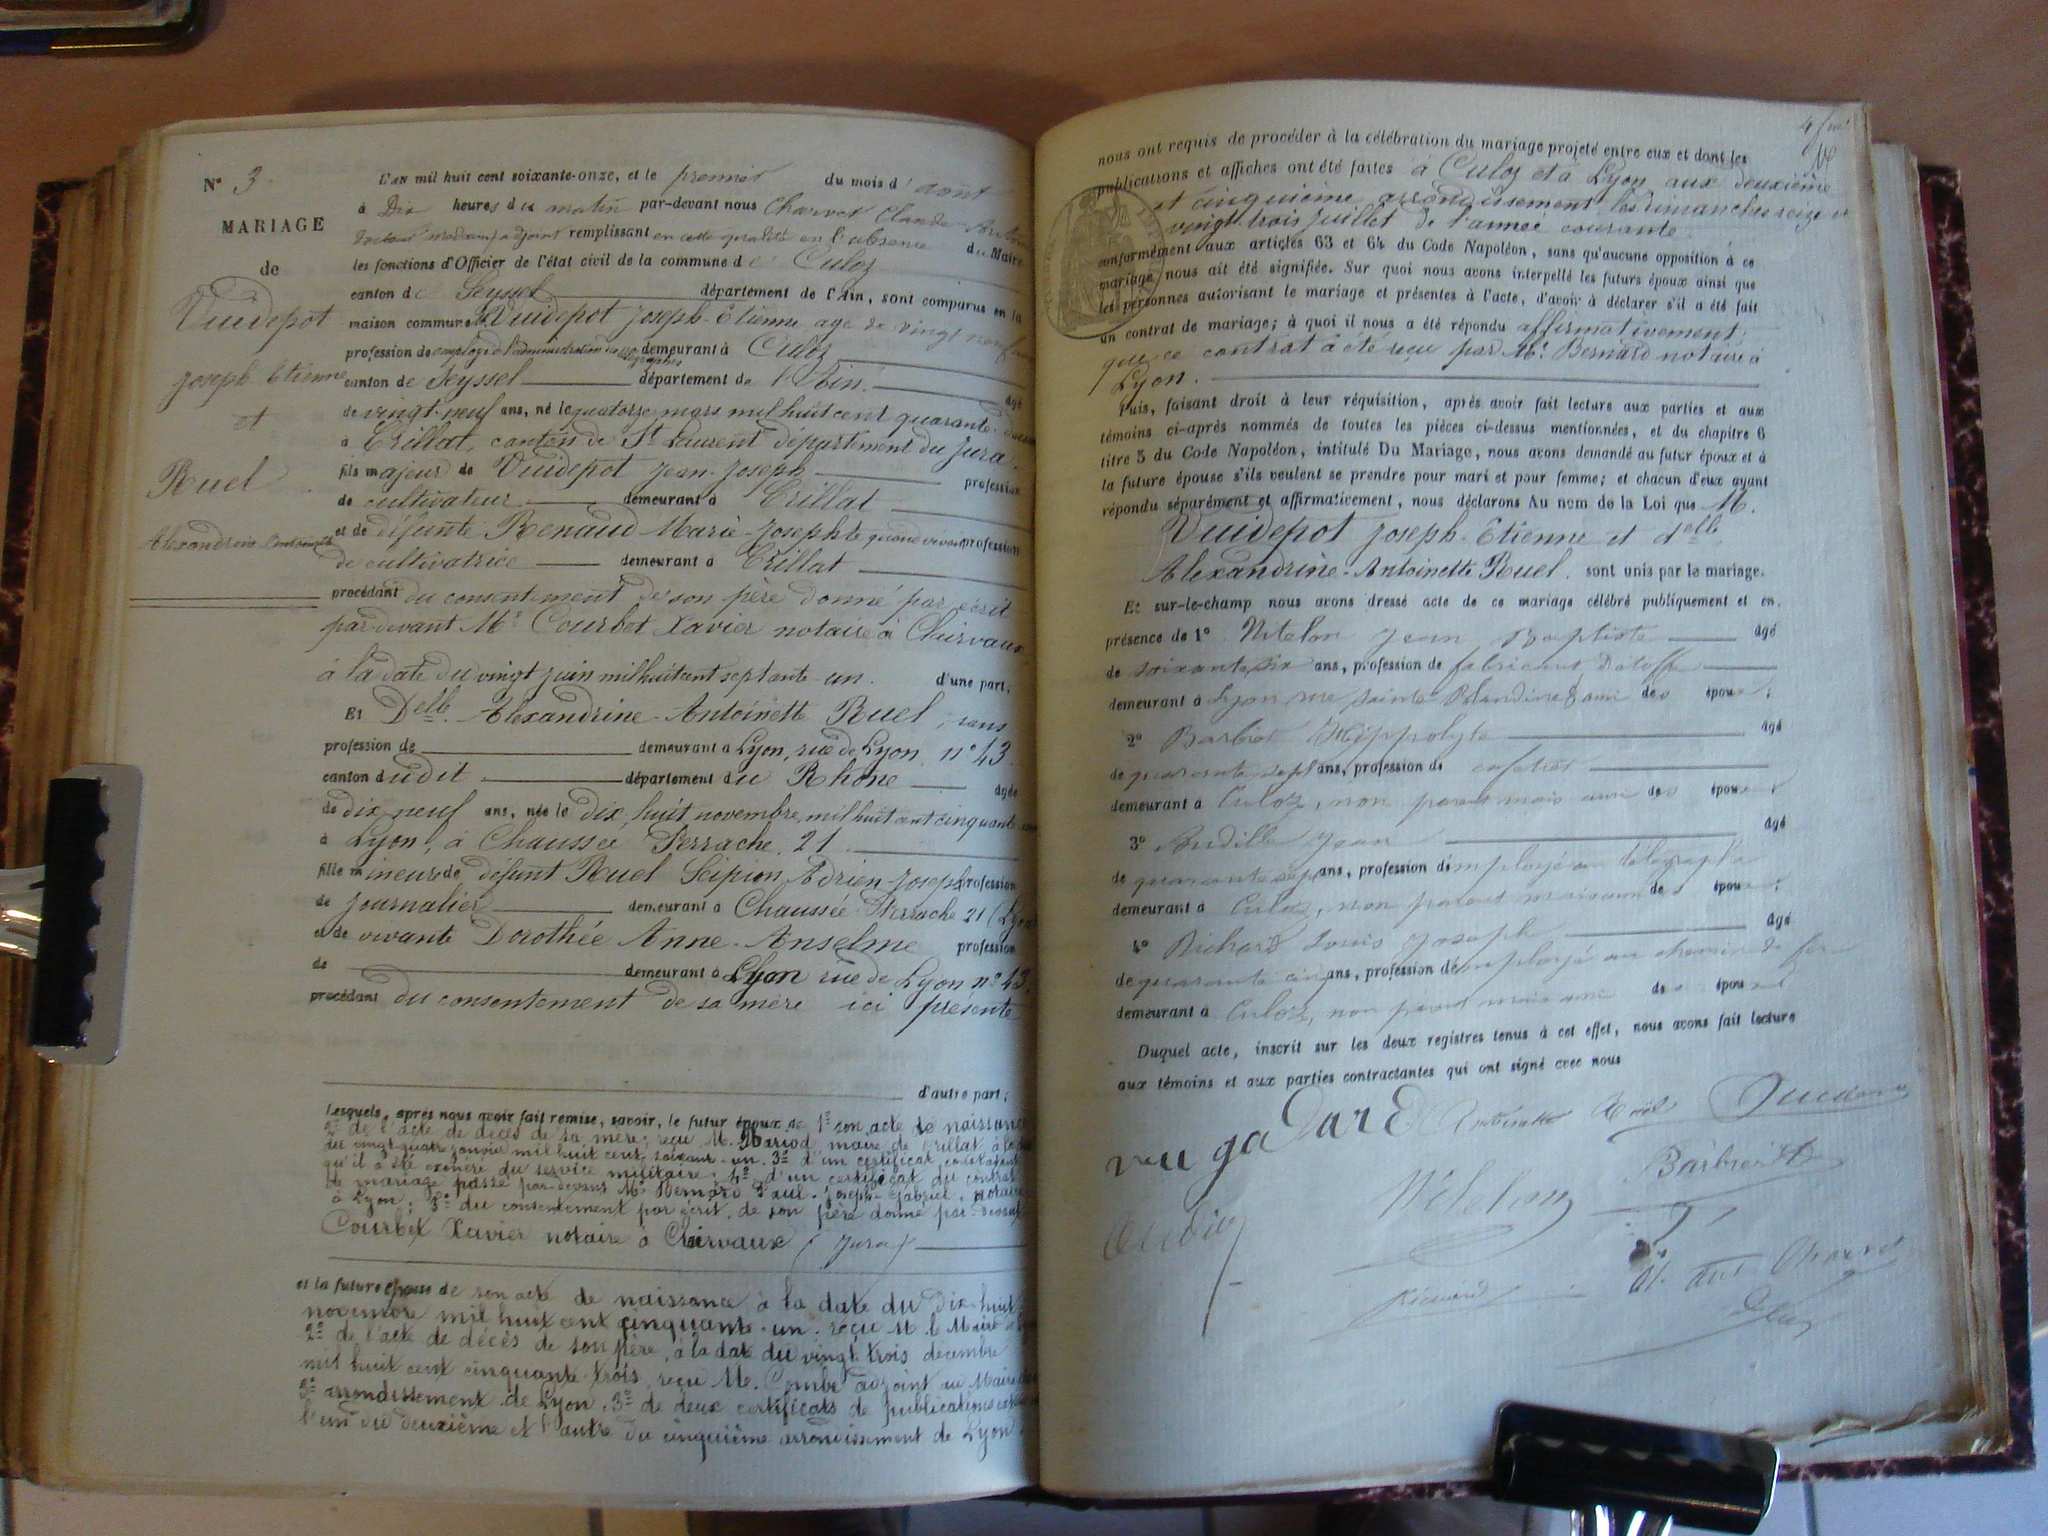 N° 3
MARIAGE
de
Vuidepot
Joseph Etienne
et
Ruel
Alexandrine Antoinette
L'AN mil huit cent soixante-onze, et le premier du mois d'août
à Dix heures du matin par-devant nous Charvet Claude
adjoint remplissant en cette qualité en l'absence du Maire
les fonctions d'Officier de l'état civil de la commune de Culoz
canton de Seyssel département de l'Ain, sont comparus en la
maison commune Vuidepot Joseph-Etienne age de vingt neuf ans
profession de employé à l'administration des télégraphes demeurant à Culoz
canton de Seyssel département de l'Ain. âgé
de vingt-neuf ans, né le quatorze mars mil huit cent quarante-deux
à Crillat, canton de St Laurent département du Jura.
fils majeur de Vuidepot Jean-Joseph profession
de cultivateur demeurant à Crillat
et de défunte Renaud Marie-Josephte quand vivait profession
de cultivatrice demeurant à Crillat
procédant du consentement de son père donné par écrit
par-devant Me Courbet Xavier notaire à Clairvaux
à la date du vingt juin mil huit cent septante-un. d'une part;
Et Delle Alexandrine-Antoinette Ruel, sans
profession de demeurant à Lyon, rue de Lyon n° 43.
canton dudit département du Rhône âgée
de dix neuf ans, née le dix-huit novembre mil huit cent cinquante-un
à Lyon, à Chaussée Perrache, 21
fille mineure de défunt Ruel Scipion Adrien-Joseph profession
de journalier demeurant à Chaussée Perrache 21 (Lyon
et de vivante Dorothée Anne-Anselme profession
de demeurant à Lyon rue de Lyon n° 43.
procédant du consentement de sa mère ici présente
d'autre part;
Lesquels, après nous avoir fait remise, savoir, le futur époux de 1° son acte de naissance
2° de l'acte de décès de sa mère; reçu M. maire de Crillat à la
du vingt quatre janvier mil huit cent soixant-un. 3° d'un certificat constatant
qu'il a été exonéré du service militaire. 4° d'un certificat du contrat
de mariage passé par-devant Me Bernard Paul-Joseph-Gabriel, notaire
à Lyon; 5° du consentement par écrit, de son père donné par-devant
Courbet Xavier notaire à Clairvaux (Jura)
et la future épouse de son acte de naissance à la date du dix-huit
novembre mil huit cent cinquante-un. reçu M. le Maire
2° de l'acte de décès de son père, à la date du vingt trois décembre
mil huit cent cinquante-trois, reçu M. Combe adjoint au Maire
3° arrondissement de Lyon. 3° de deux certificats de publications
l'un du deuxième et l'autre du cinquième arrondissement de Lyon
4
nous ont requis de procéder à la célébration du mariage projeté entre eux et dont les
publications et affiches ont été faites à Culoz et à Lyon aux deuxième
et cinquième arrondissement les dimanches seize et
vingt-trois juillet de l'année courante.
conformément aux articles 63 et 64 du Code Napoléon, sans qu'aucune opposition à ce
mariage nous ait été signifiée. Sur quoi nous avons interpellé les futurs époux ainsi que
les personnes autorisant le mariage et présentes à l'acte, d'avoir à déclarer s'il a été fait
un contrat de mariage; à quoi il nous a été répondu affirmativement,
que ce contrat a été reçu par Me Bernard notaire à
Lyon.
Puis, faisant droit à leur réquisition, après avoir fait lecture aux parties et aux
témoins ci-après nommés de toutes les pièces ci-dessus mentionnées, et du chapitre 6
titre 5 du Code Napoléon, intitulé Du Mariage, nous avons demandé au futur époux et à
la future épouse s'ils veulent se prendre pour mari et pour femme; et chacun d'eux ayant
répondu séparément et affirmativement, nous déclarons Au nom de la Loi que M.
Vuidepot Joseph-Etienne et delle
Alexandrine-Antoinette Ruel. sont unis par le mariage.
Et sur-le-champ nous avons dressé acte de ce mariage célébré publiquement et en
présence de 1° Jean Baptiste âgé
de soixante six ans, profession de fabricant d'étoffe
demeurant à Lyon rue Sainte Blandine ami des époux;
2° Hippolyte âgé
de quarante sept ans, profession de cafetier
demeurant à Culoz, non parent mais ami des époux
3° Jean âgé
de quarante sept ans, profession d'employé au télégraphe
demeurant à Culoz, non parent mais ami des époux;
4° Richard Louis Joseph âgé
de quarante cinq ans, profession d'employé au chemin de fer
demeurant à Culoz, non parent mais ami des époux
Duquel acte, inscrit sur les deux registres tenus à cet effet, nous avons fait lecture
aux témoins et aux parties contractantes qui ont signé avec nous